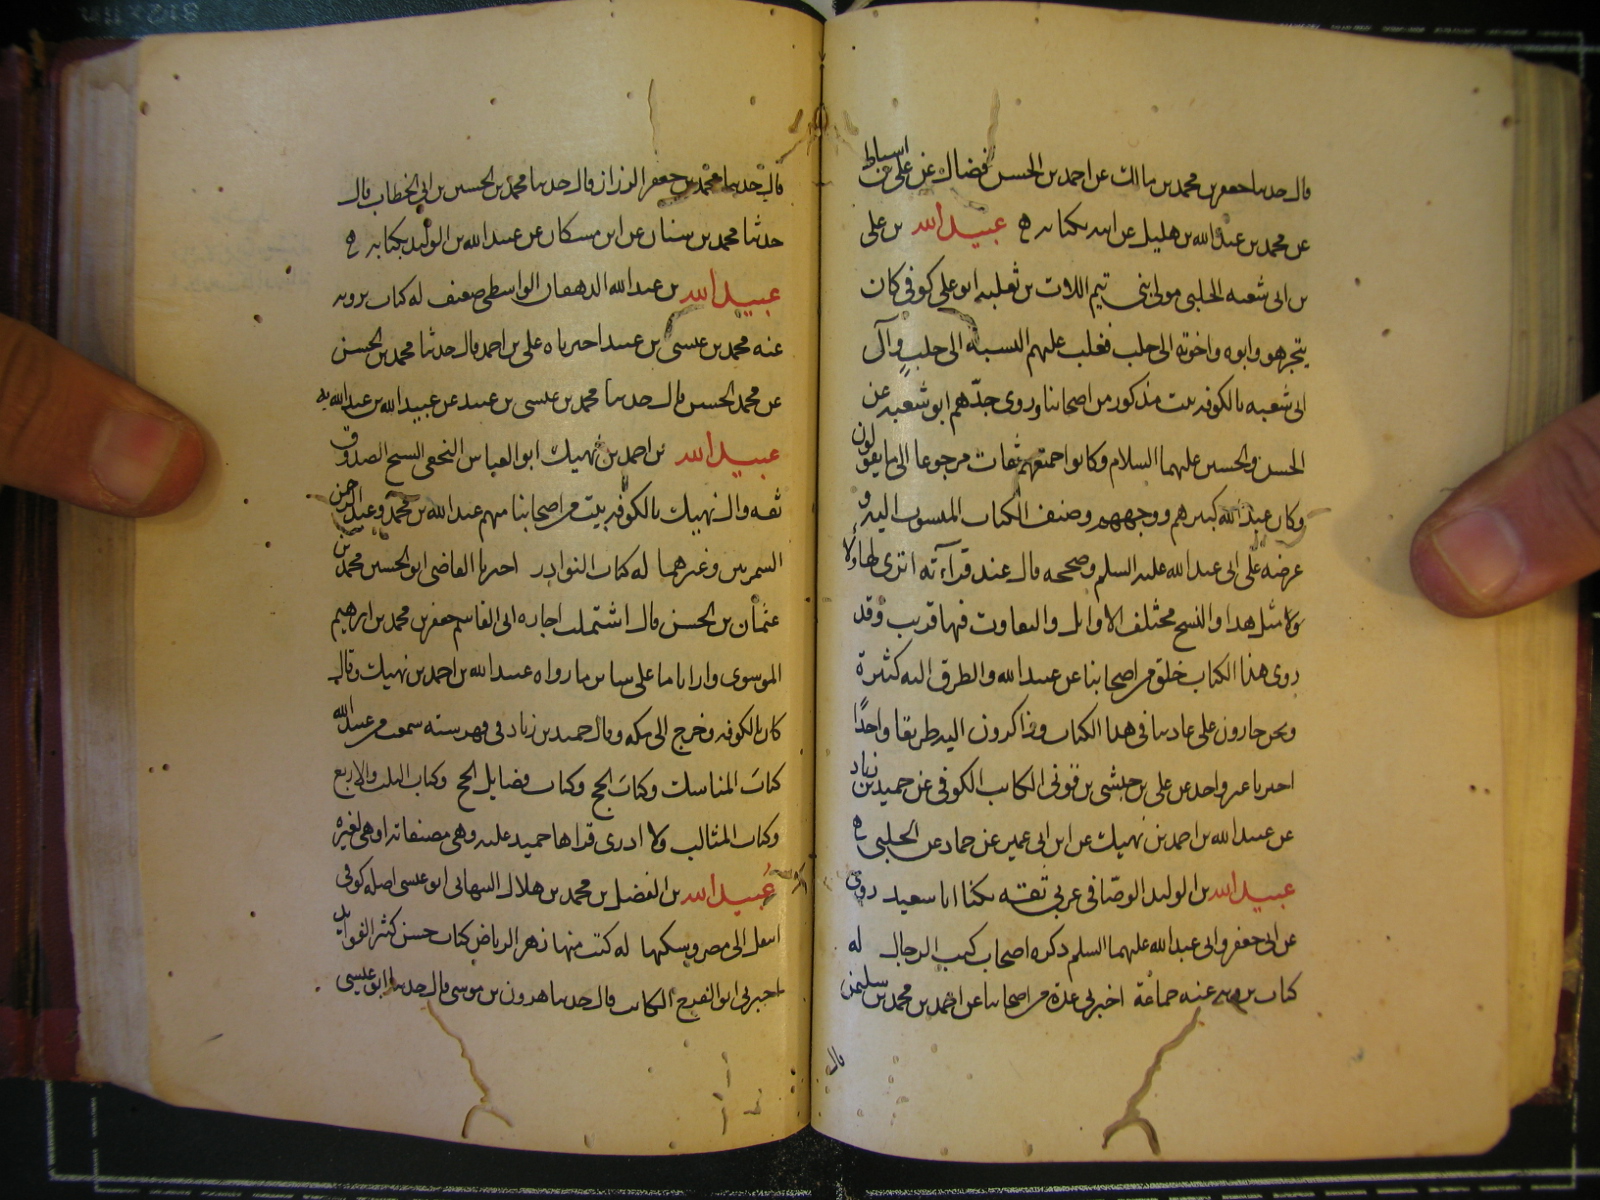 قال حدثنا جعفر بن محمد بن مالك عن احمد بن الحسن فضال عن على بن اسباط
عن محمد بن عبد الله بن هليل عن ابيه بكتابه عبيد الله بن على
بن ابى شعبه الحلبى مولى بنى تيم اللات بن ثعلبه ابو على كوفى كان
يتجر هو وابوه واخوته الى حلب فغلب عليهم النسبه الى حلب وآل
ابى شعبه بالكوفه بيت مذكور من اصحابنا وروى جدّهم ابو شعبه عن
الحسن والحسين عليهما السلام وكانوا جميعهم ثقات مرجوعا الى ما يقولون
وكان عبيد الله كبيرهم ووجههم وصنف الكتاب المنسوب اليه و
عرضه على ابى عبد الله عليه السلم وصححه قال عند قرآءته اترى لهاولاء
مثل هذا والنسخ مختلف الاوايل والتفاوت فيها قريب وقد
روى هذا الكتاب خلق من اصحابنا عن عبيد الله والطرق اليه كثيرة
ونحن جارون على عادتنا فى هذا الكتاب وذاكرون اليه طريقا واحدًا
اخبرنا غير واحد عن على بن حبشى بن قونى الكاتب الكوفى عن حميد بن زياد
عن عبيد الله بن احمد بن نهيك عن ابن ابى عمير عن حماد عن الحلبى
عبيد الله بن الوليد الوصّافى عربى ثقه يكنا ابا سعيد روى
عن ابى جعفر وابى عبد الله عليهما السلم ذكره اصحاب كتب الرجال له
كتاب يرويه عنه جماعة اخبرنى عدة من اصحابنا عن احمد بن محمد بن سليمن
قال
قال حدثنا محمد بن جعفر الرزاز قال حدثنا محمد بن الحسين بن ابى الخطاب قال
حدثنا محمد بن سنان عن ابن مسكان عن عبيد الله بن الوليد بكتابه
عبيد الله بن عبد الله الدهقان الواسطى ضعيف له كتاب يرويه
عنه محمد بن عيسى بن عبيد اخبرناه على بن احمد قال حدثنا محمد بن الحسن
عن محمد الحسن قال حدثنا محمد بن عيسى بن عبيد عن عبيد الله بن عبد الله به
عبيد الله بن احمد بن نهيك ابو العباس النخعى الشيخ الصدوق
ثقه وال نهيك بالكوفه بيت من اصحابنا منهم عبد الله بن محمد وعبد الرحمن
السمريين وغيرهما له كتاب النوادر اخبرنا القاضى ابو الحسين محمد بن
عثمان بن الحسن قال اشتملت اجازه ابى القاسم جعفر بن محمد بن ابرهيم
الموسوى وارانا ها على ساير ما رواه عبيد الله بن احمد بن نهيك وقال
كان بالكوفه وخرج الى مكه وقال حميد بن زياد فى فهرسته سمعت من عبيد الله
كتاب المناسك وكتاب الحج وكتاب فضايل الحج وكتاب الثلث والاربع
وكتاب المثالب ولا ادرى قراها حميد عليه وهى مصنفاته او هى لغيره
عُبيد الله بن الفضل بن محمد بن هلال النبهانى ابو عيسى اصله كوفى
انتقل الى مصر وسكنها له كتب منها زهر الرياض كتاب حسن كثير الفوايد
اخبرنى ابو الفرج الكاتب قال حدثنا هرون بن موسى قال حدثنا ابو عيسى